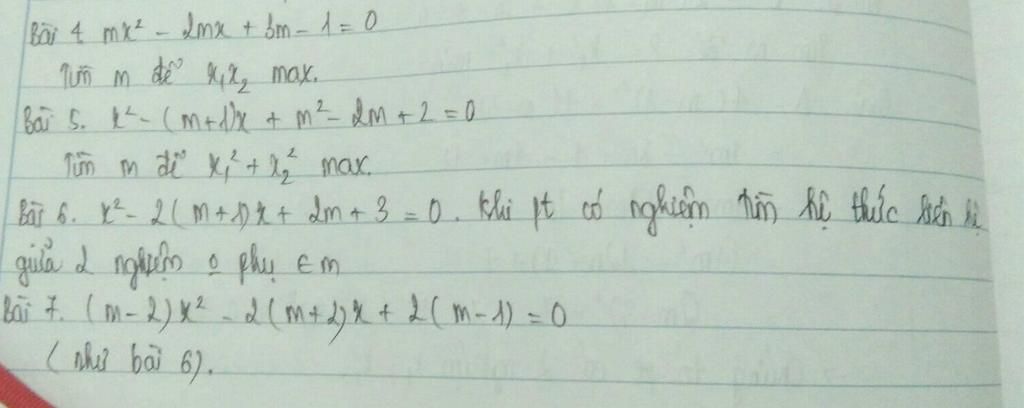 Bài 4 mx² - 2mx + 3m - 1 = 0
Tìm m để x₁x₂ max.
Bài 5. x² - (m+1)x + m² - 2m + 2 = 0
Tìm m để x₁² + x₂² max.
Bài 6. x² - 2(m+1)x + 2m + 3 = 0. Khi pt có nghiệm tìm hệ thức liên hệ
giữa 2 nghiệm o phụ ∈ m
Bài 7. (m-2)x² - 2(m+2)x + 2(m-1) = 0
(như bài 6).